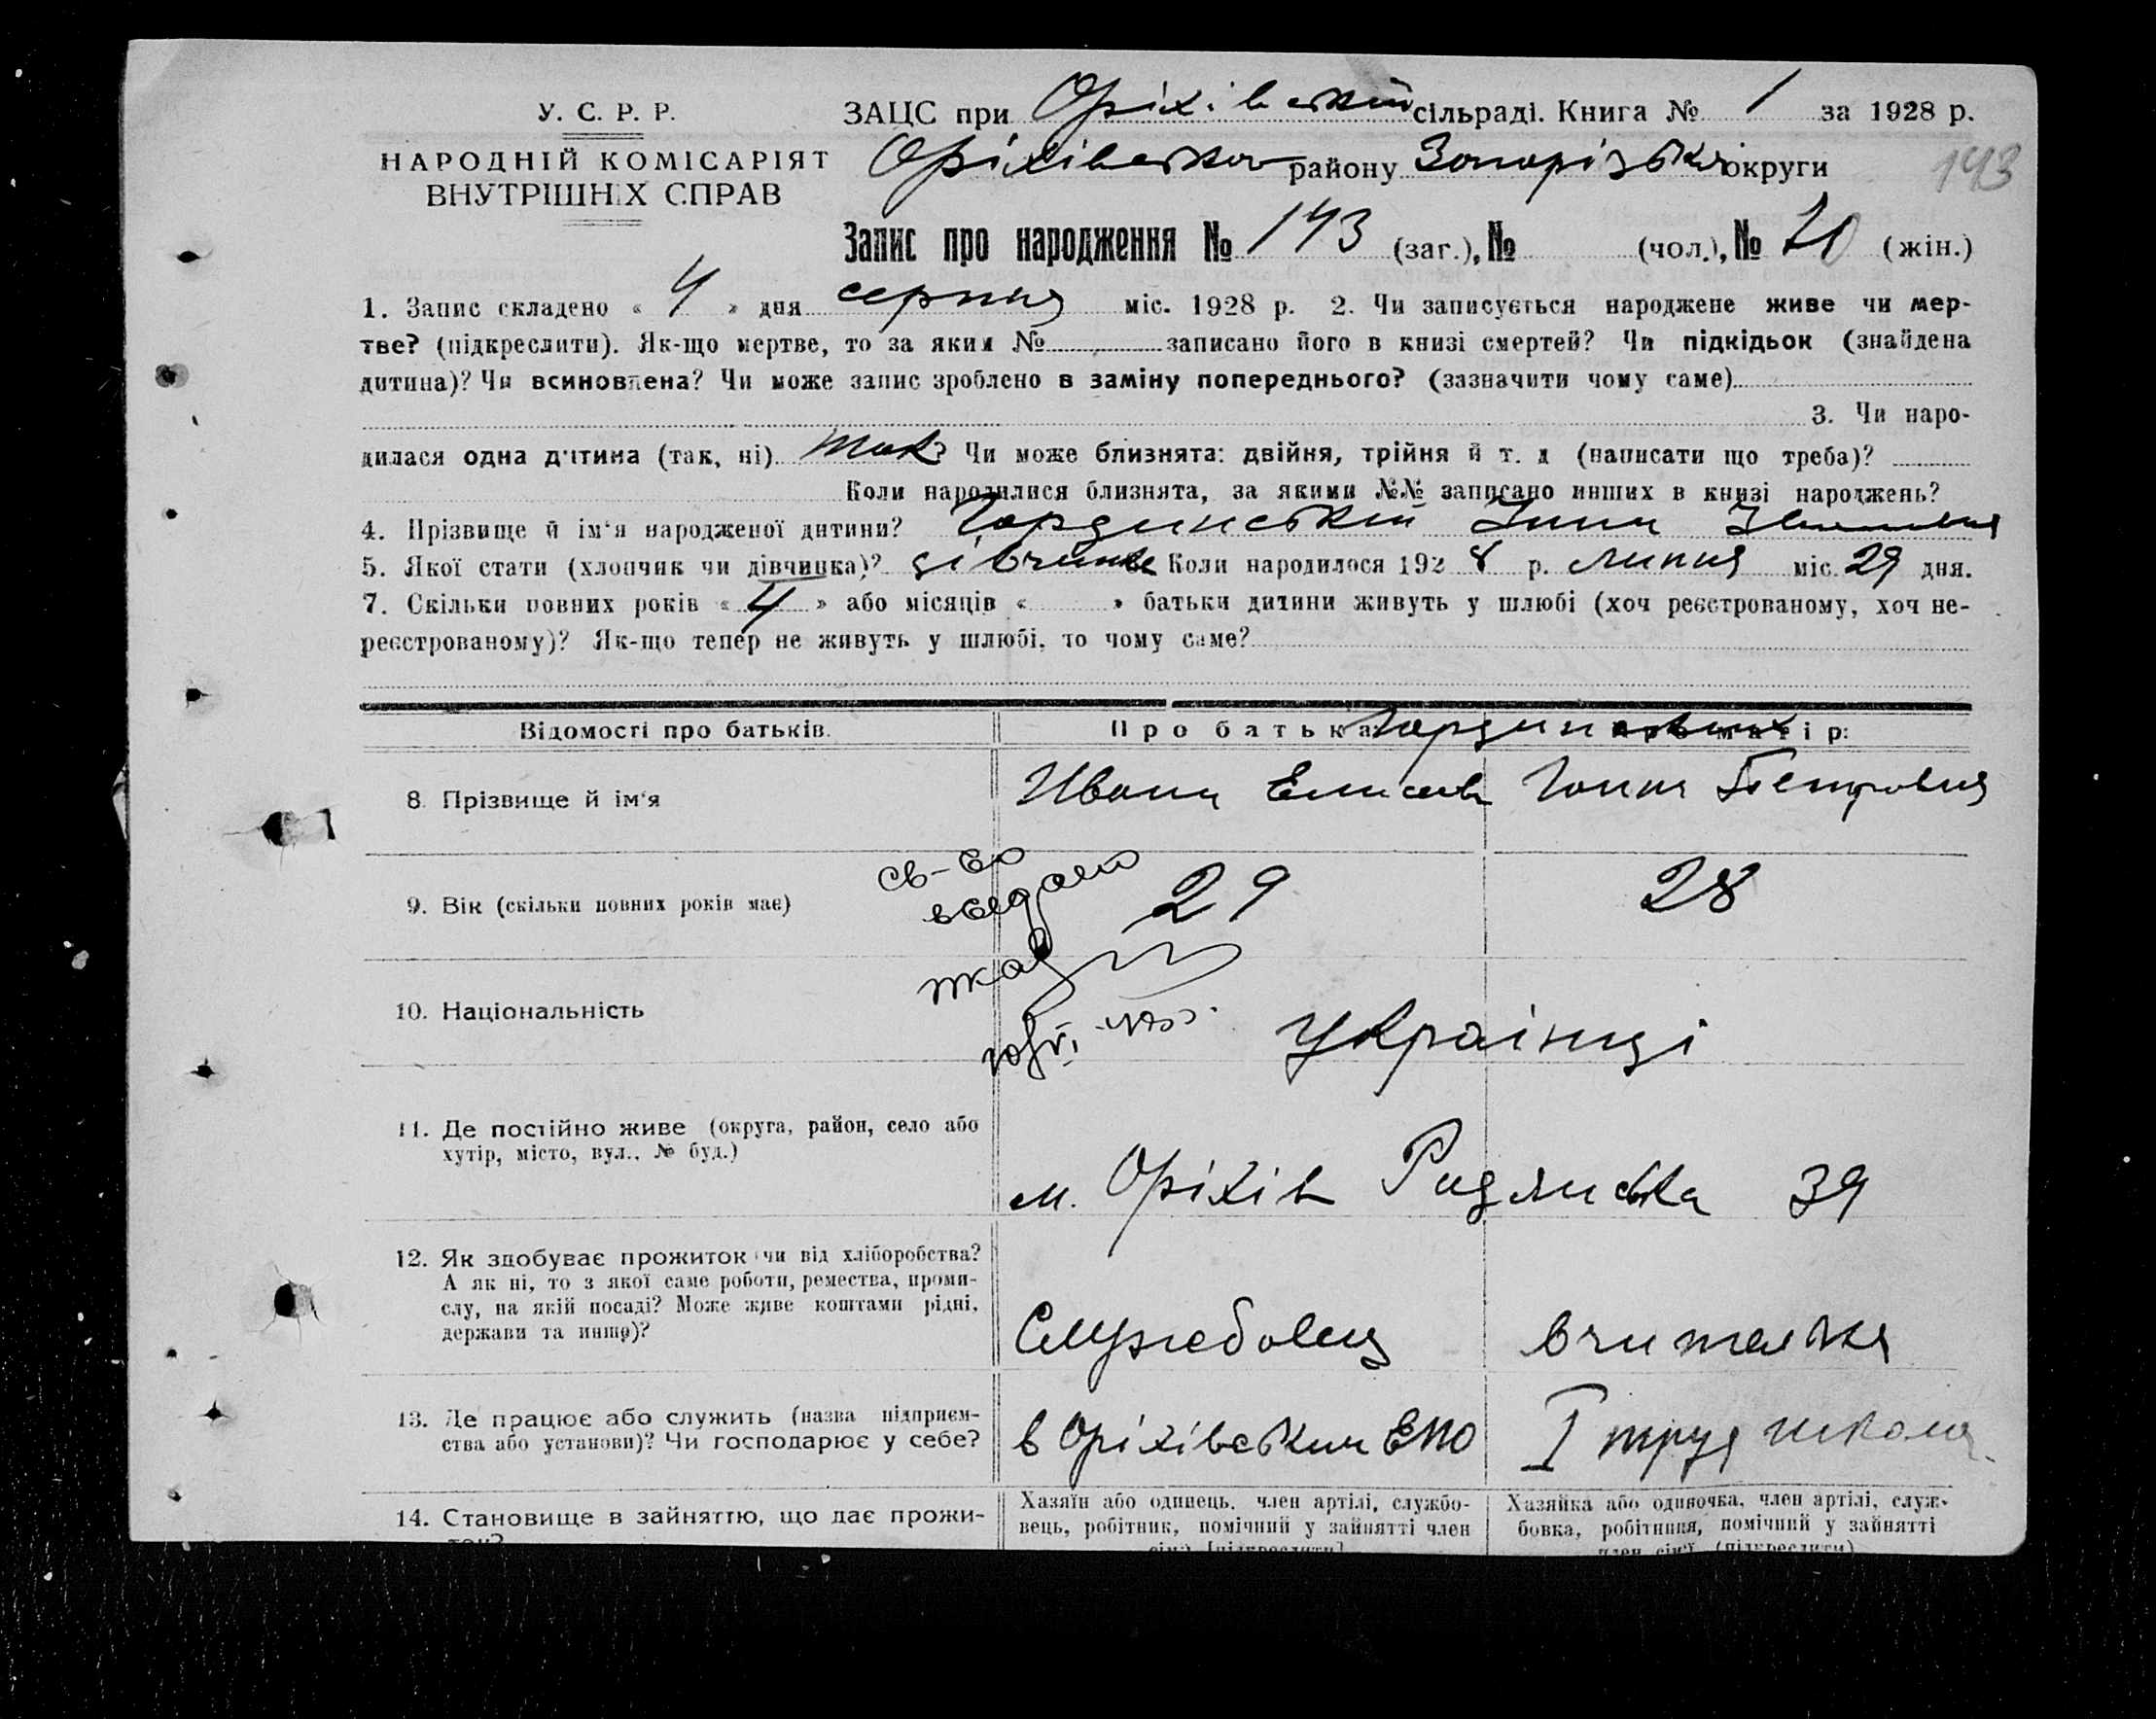 У. С. Р. Р.
НАРОДНІЙ КОМІСАРІЯТ
ВНУТРІШНІХ СПРАВ
ЗАЦС при Оріхівській сільраді. Книга № 1 за 1928 р.
Оріхівского району Запорізької округи
143
Запис про народження № 143 (заг.), № (чол.), № 70 (жін.)
1. Запис складено « 4 » дня серпня міс. 1928 р. 2. Чи записується народжене живе чи мер-
тве? (підкреслити). Як-що мертве, то за яким № записано його в книзі смертей? Чи підкідьок (знайдена
дитина)? Чи всиновлена? Чи може запис зроблено в заміну попереднього? (зазначити чому саме)
3. Чи наро-
дилася одна дитина (так, ні) так? Чи може близнята: двійня, трійня й т. д (написати що треба)?
Коли народилися близнята, за якими №№ записано инших в книзі народжень?
4. Прізвище й ім'я народженої дитини?
5. Якої стати (хлопчик чи дівчинка)? дівчинка Коли народилося 1928 р. липня міс. 29 дня.
7. Скільки повних років « 4 » або місяців « » батьки дитини живуть у шлюбі (хоч реєстрованому, хоч не-
реєстрованому)? Як-що тепер не живуть у шлюбі, то чому саме?
Відомості про батьків.
Про батька
матір:
8. Прізвище й ім'я
Иван Елисеев
Ганна Петровна
9. Вік (скільки повних років має)
29
28
10. Національність
Українці
11. Де постійно живе (округа, район, село або
хутір, місто, вул., № буд.)
м. Оріхів 39
12. Як здобуває прожиток чи від хліборобства?
А як ні, то з якої саме роботи, ремества, проми-
слу, на якій посаді? Може живе коштами рідні,
держави та инше)?
Служебовец
вчителька
13. Де працює або служить (назва підприєм-
ства або установи)? Чи господарює у себе?
в Оріхівським ЕПО
I труд школа
14. Становище в зайняттю, що дає прожи-
ток?
Хазяїн або одинець, член артілі, службо-
вець, робітник, помічний у зайнятті член
сім'ї [підкреслити]
Хазяйка або одиночка, член артілі, служ-
бовка, робітниця, помічний у зайнятті
член сім'ї (підкреслити)